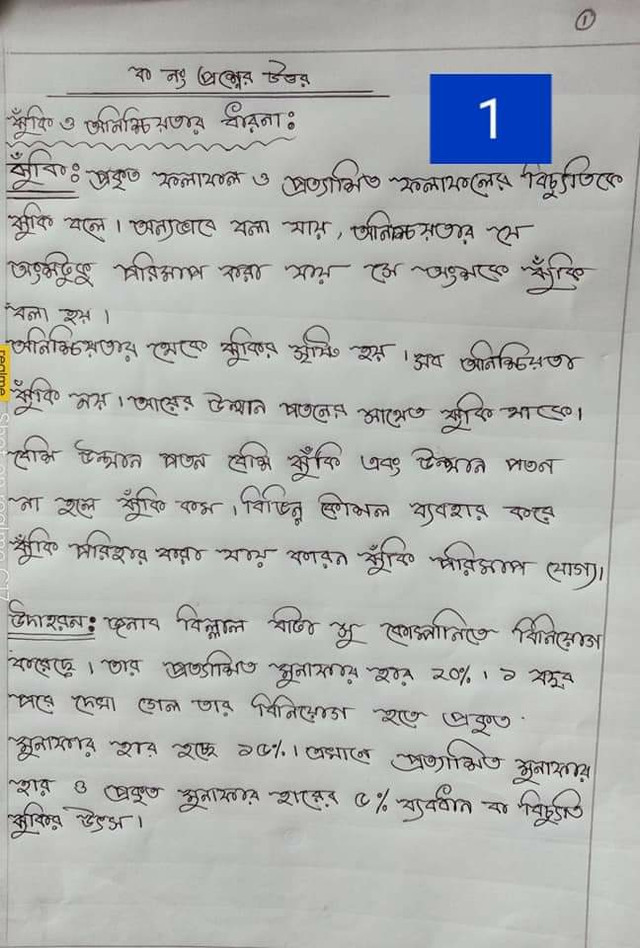 ১
ক নং প্রশ্নের উত্তর
1
ঝুঁকি ও অনিশ্চিয়তার ধারনা:
ঝুঁকি: প্রকৃত ফলাফল ও প্রত্যাশিত ফলাফলের বিচ্যুতিকে
ঝুকি বলে। অন্যভাবে বলা যায়, অনিশ্চয়তার যে
অংশটুকু পরিমাপ করা যায় সে অংশকে ঝুঁকি
বলা হয়।
অনিশ্চিয়তার থেকে ঝুকির সৃষ্টি হয়। সব অনিশ্চিয়তা
ঝুঁকি নয়। আয়ের উত্থান পতনের সাথেও ঝুকি থাকে।
বেশি উত্থান পতন বেশি ঝুঁকি এবং উত্থান পতন
না হলে ঝুঁকি কম। বিভিন্ন কৌশল ব্যবহার করে
ঝুঁকি পরিহার করা যায় কারন ঝুঁকি পরিমাপ যোগ্য।
উদাহরন: জনাব বিল্লাল বাটা সু কোম্পানিতে বিনিয়োগ
করেছে। তার প্রত্যাশিত মুনাফার হার ২০%। ১ বছর
পরে দেখা গেল তার বিনিয়োগ হতে প্রকৃত
মুনাফার হার হচ্ছে ১৫%। এখানে প্রত্যাশিত মুনাফার
হার ও প্রকৃত মুনাফার হারের ৫% ব্যবধান বা বিচ্যুতি
ঝুকির উৎস।
realme
Shot on realme C17